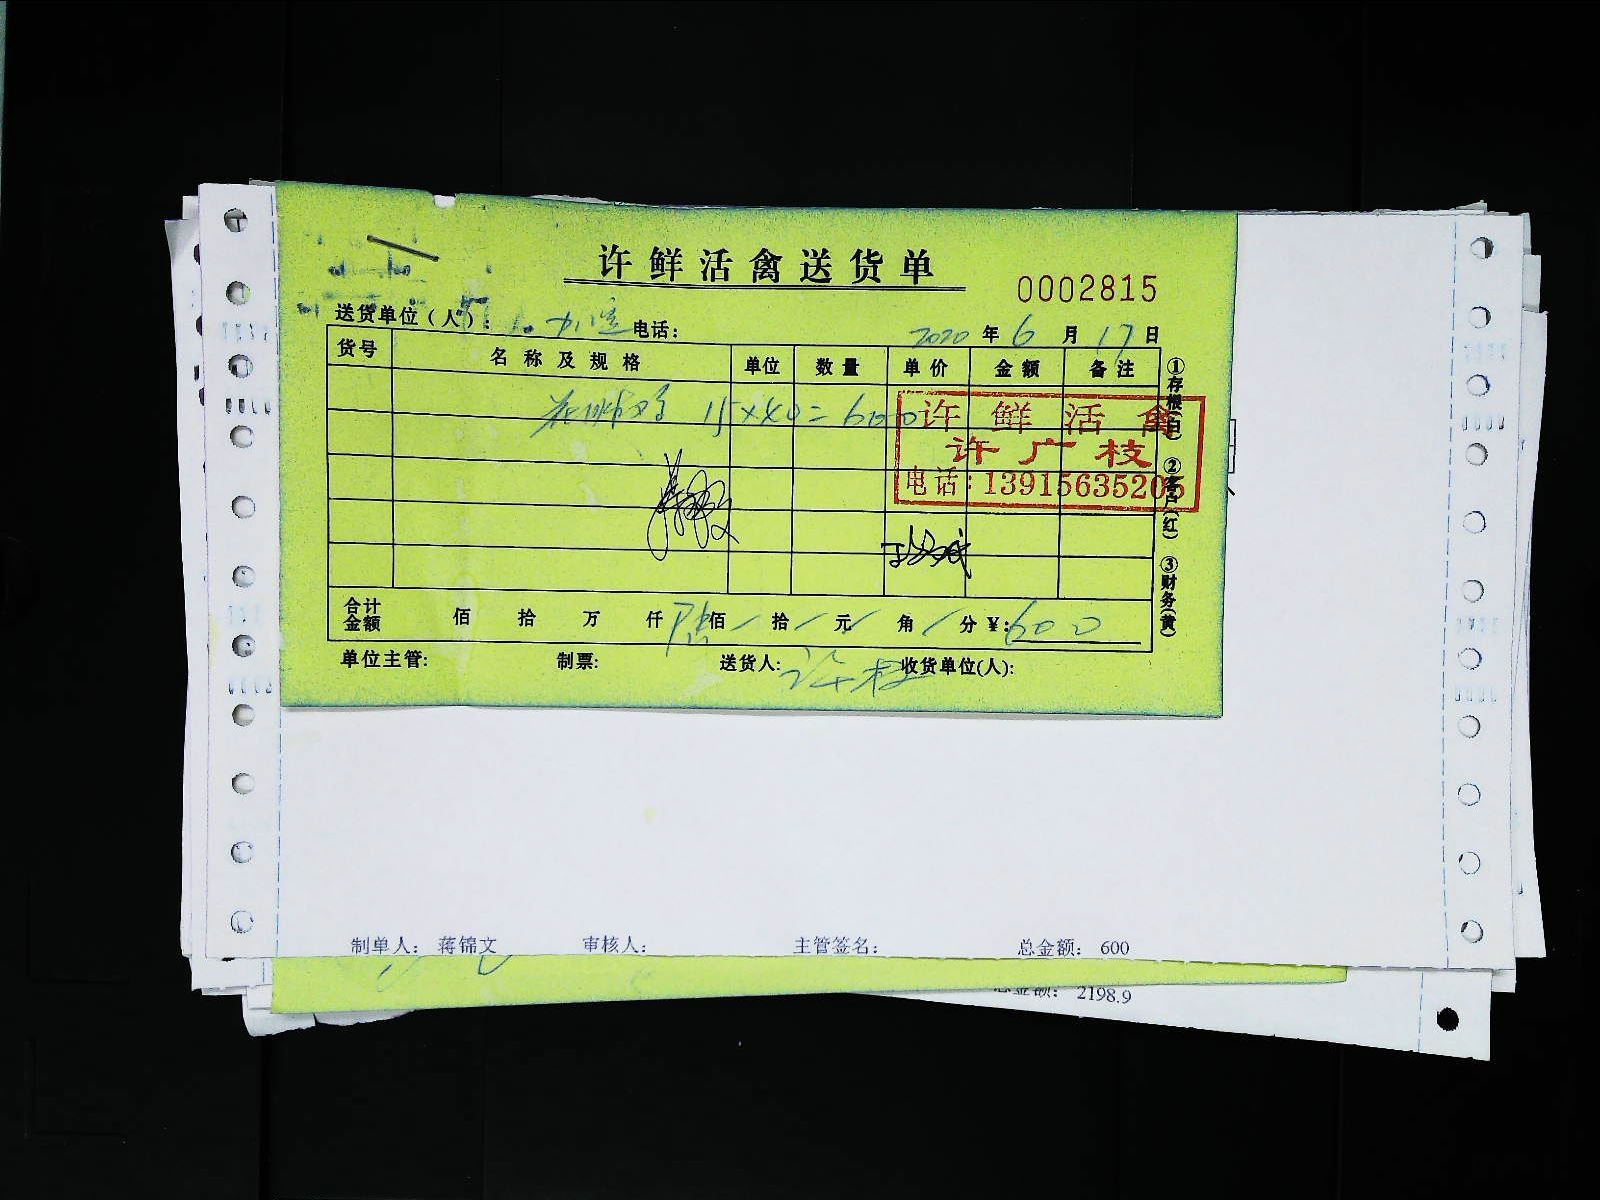 许鲜活禽送货单
0002815
送货单位(人): 电话: 2020 年 6 月 17 日
货号 名称及规格 单位 数量 单价 金额 备注
15×40=600
许鲜活禽
许广枝
电话:13915635205
①存根(白) ②客户(红) ③财务(黄)
合计金额 佰 拾 万 仟 陆佰 / 拾 / 元 / 角 / 分 ¥:600
单位主管: 制票: 送货人:许枝 收货单位(人):
制单人: 蒋锦文 审核人: 主管签名: 总金额: 600
总金额: 2198.9